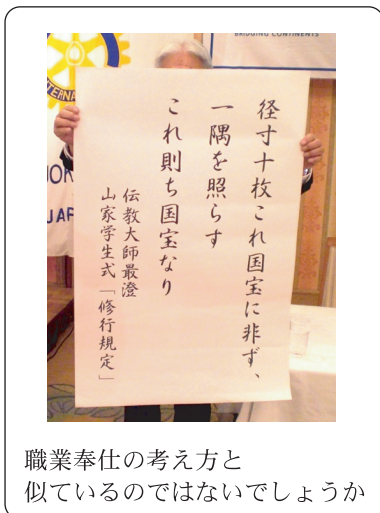 BRIDGING CONTINENTS
径寸十枚これ国宝に非ず、
一隅を照らす
これ則ち国宝なり
伝教大師最澄
山家学生式「修行規定」
職業奉仕の考え方と
似ているのではないでしょうか